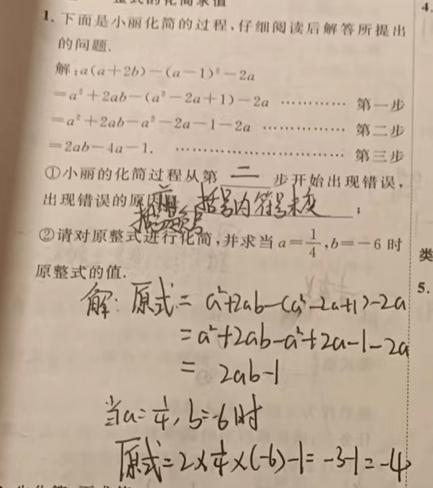 整式的化简求值
4.
1. 下面是小丽化简的过程,仔细阅读后解答所提出
的问题.
解:a(a+2b)-(a-1)²-2a
=a²+2ab-(a²-2a+1)-2a ………… 第一步
=a²+2ab-a²-2a-1-2a ………… 第二步
=2ab-4a-1. ………………………… 第三步
①小丽的化简过程从第 二 步开始出现错误,
出现错误的原因是 括号内符号未变 ;
②请对原整式进行化简,并求当 a=1/4,b=-6 时
类
原整式的值.
5.
解: 原式=a²+2ab-(a²-2a+1)-2a
=a²+2ab-a²+2a-1-2a
= 2ab-1
当a=1/4,b=-6时
原式=2×1/4×(-6)-1=-3-1=-4